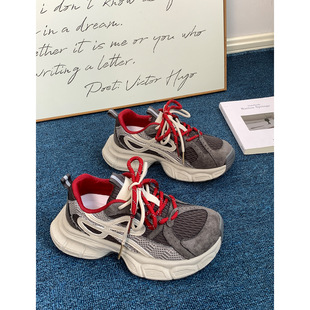 i don't know if
in a dream.
whether it is me or you who
writing a letter.
Poet: Victor Hugo